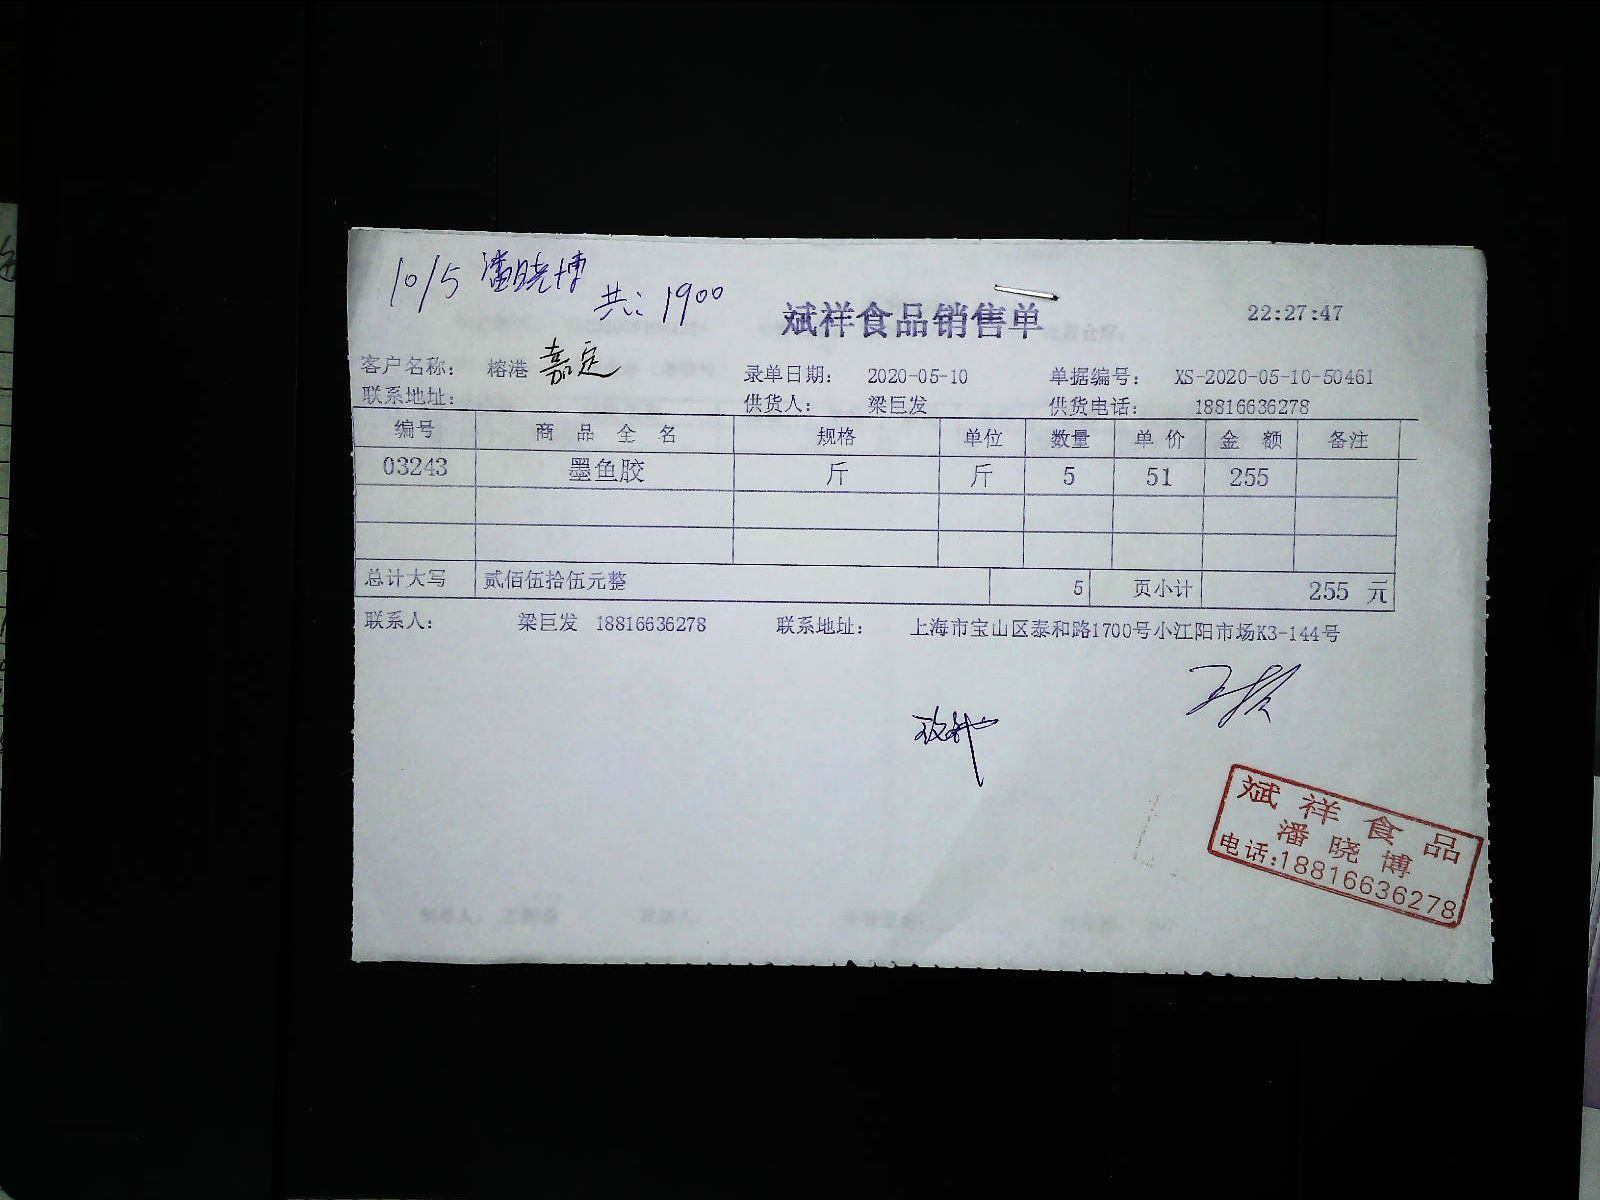 10/5 潘晓博
共: 1900
斌祥食品销售单
22:27:47
客户名称: 榕港 嘉定 录单日期: 2020-05-10 单据编号: XS-2020-05-10-50461
联系地址: 供货人: 梁巨发 供货电话: 18816636278
编号 商品全名 规格 单位 数量 单价 金额 备注
03243 墨鱼胶 斤 斤 5 51 255
总计大写 贰佰伍拾伍元整 5 页小计 255 元
联系人: 梁巨发 18816636278 联系地址: 上海市宝山区泰和路1700号小江阳市场K3-144号
斌祥食品
潘晓博
电话:18816636278